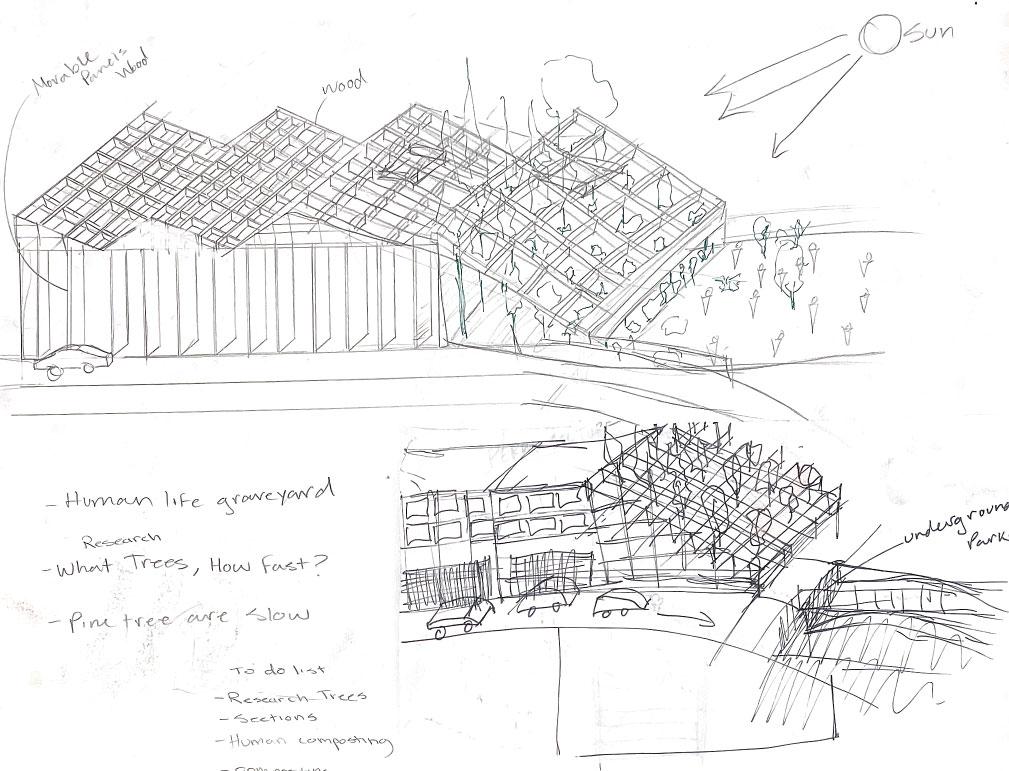 Sun
Movable
Panels
Wood
wood
- Human life graveyard
Research
- What Trees, How Fast?
- Pine tree are slow
underground
Park
To do list
- Research Trees
- Sections
- Human composting